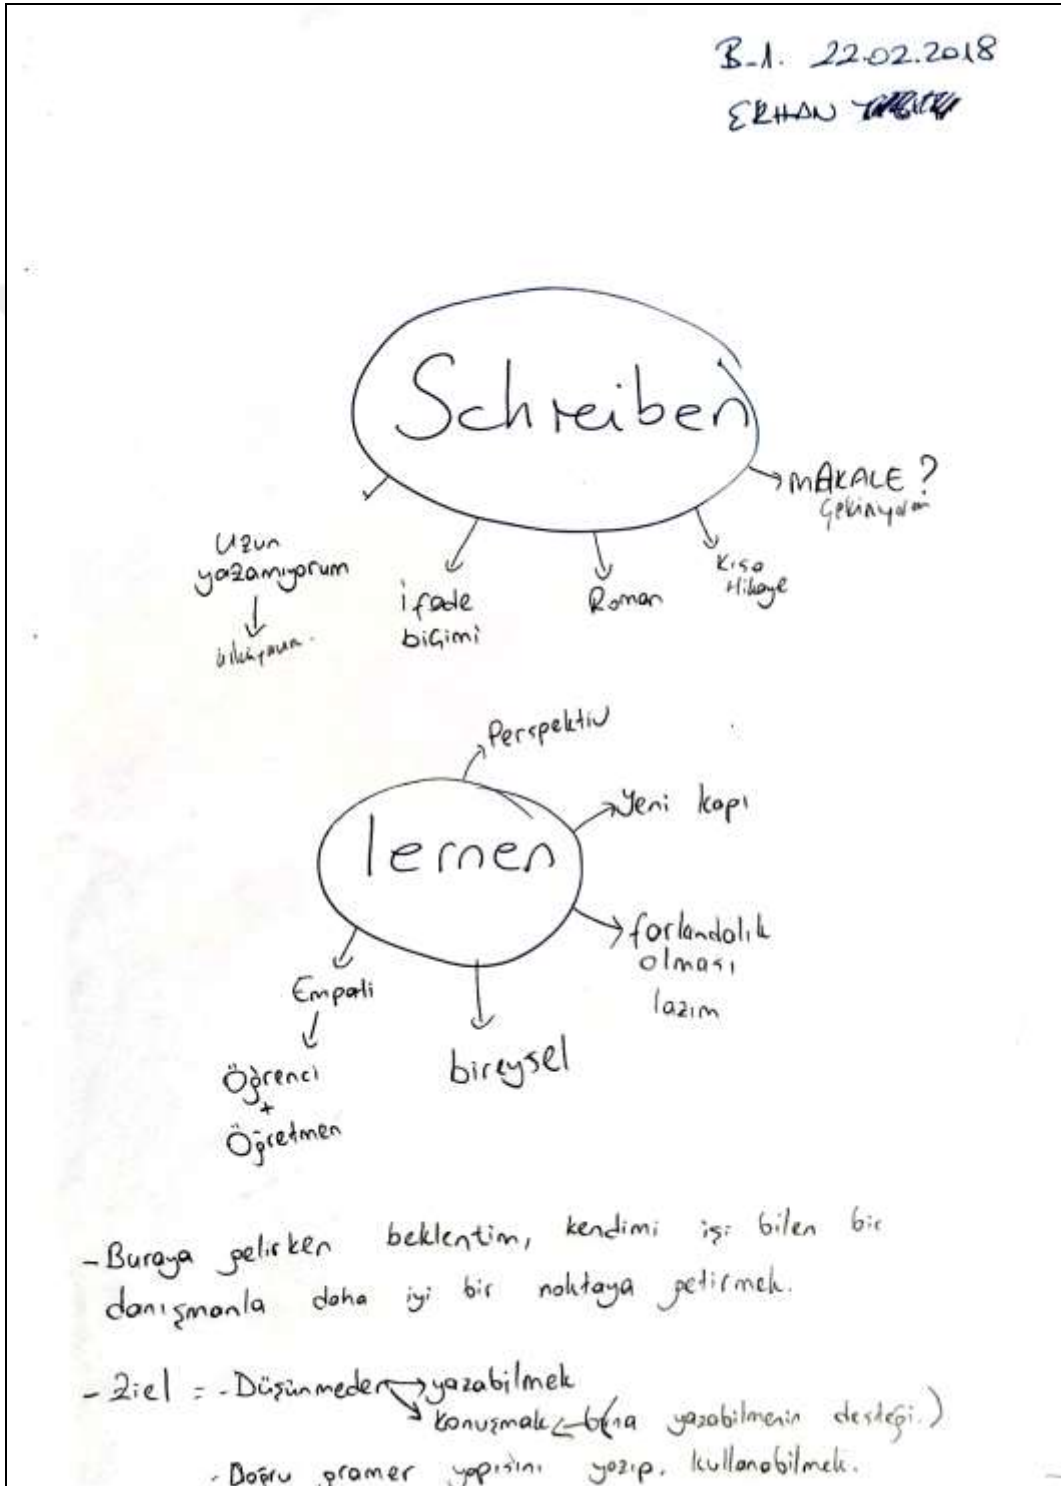 B-1. 22.02.2018
ERHAN
Schreiben
MAKALE?
Çekiniyorum
Kısa
Hikaye
Roman
ifade
biçimi
Uzun
yazamıyorum
Perspektiv
Yeni kapı
lernen
farkındalık
olması
lazım
Empati
bireysel
Öğrenci
+
Öğretmen
- Buraya gelirken beklentim, kendimi işi bilen bir
danışmanla daha iyi bir noktaya getirmek.
- Ziel = - Düşünmeden yazabilmek
konuşmak (buna yazabilmenin desteği.)
- Doğru gramer yapısını yazıp, kullanabilmek.